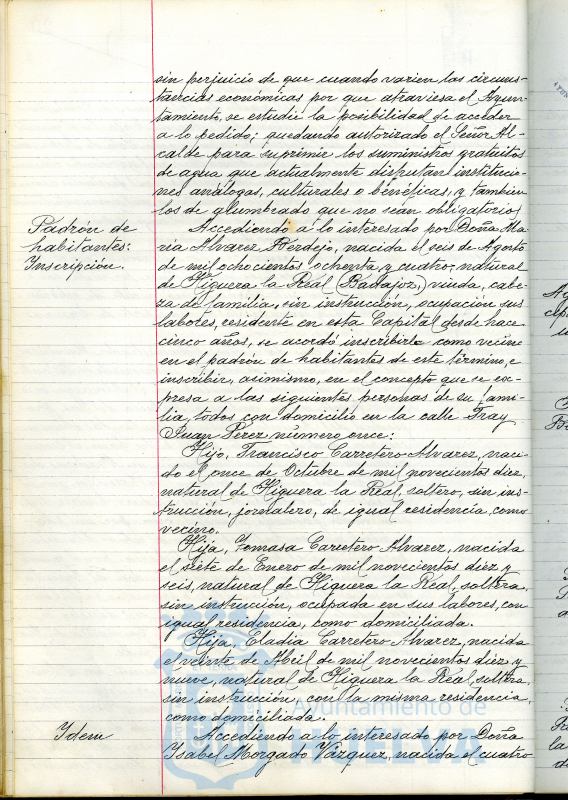 sin perjuicio de que cuando varien las circuns-
tancias económicas por que atraviesa el Ayun-
tamiento, se estudie la posibilidad de acceder
a lo pedido; quedando autorizado el Señor Al-
calde para suprimir los suministros gratuitos
de agua que actualmente disfrutan institucio-
nes análogas, culturales o benéficas, y tambien
los de alumbrado que no sean obligatorios.
Padrón de
habitantes:
Inscripción.
Accediendo a lo interesado por Doña Ma-
ria Alvarez Berdejo, nacida el seis de Agosto
de mil ochocientos ochenta y cuatro, natural
de Higuera la Real (Badajoz,) viuda, cabe-
za de familia, sin instrucción, ocupación sus
labores, residente en esta Capital desde hace
cinco años, se acordó inscribirla como vecina
en el padrón de habitantes de este término, e
inscribir, asimismo, en el concepto que se ex-
presa a las siguientes personas de su fami-
lia, todos con domicilio en la calle Fray
Juan Perez, número once:
Hijo, Francisco Carretero Alvarez, naci-
do el once de Octubre de mil novecientos diez,
natural de Higuera la Real, soltero, sin ins-
trucción, jornalero, de igual residencia, como
vecino.
Hija, Tomasa Carretero Alvarez, nacida
el siete de Enero de mil novecientos diez y
seis, natural de Higuera la Real, soltera,
sin instrucción, ocupada en sus labores, con
igual residencia, como domiciliada.
Hija, Eladia Carretero Alvarez, nacida
el veinte de Abril de mil novecientos diez y
nueve, natural de Higuera la Real, soltera,
sin instrucción, con la misma residencia,
como domiciliada.
Ayuntamiento de
HUELVA
Idem
Accediendo a lo interesado por Doña
Isabel Morgado Vázquez, nacida el cuatro